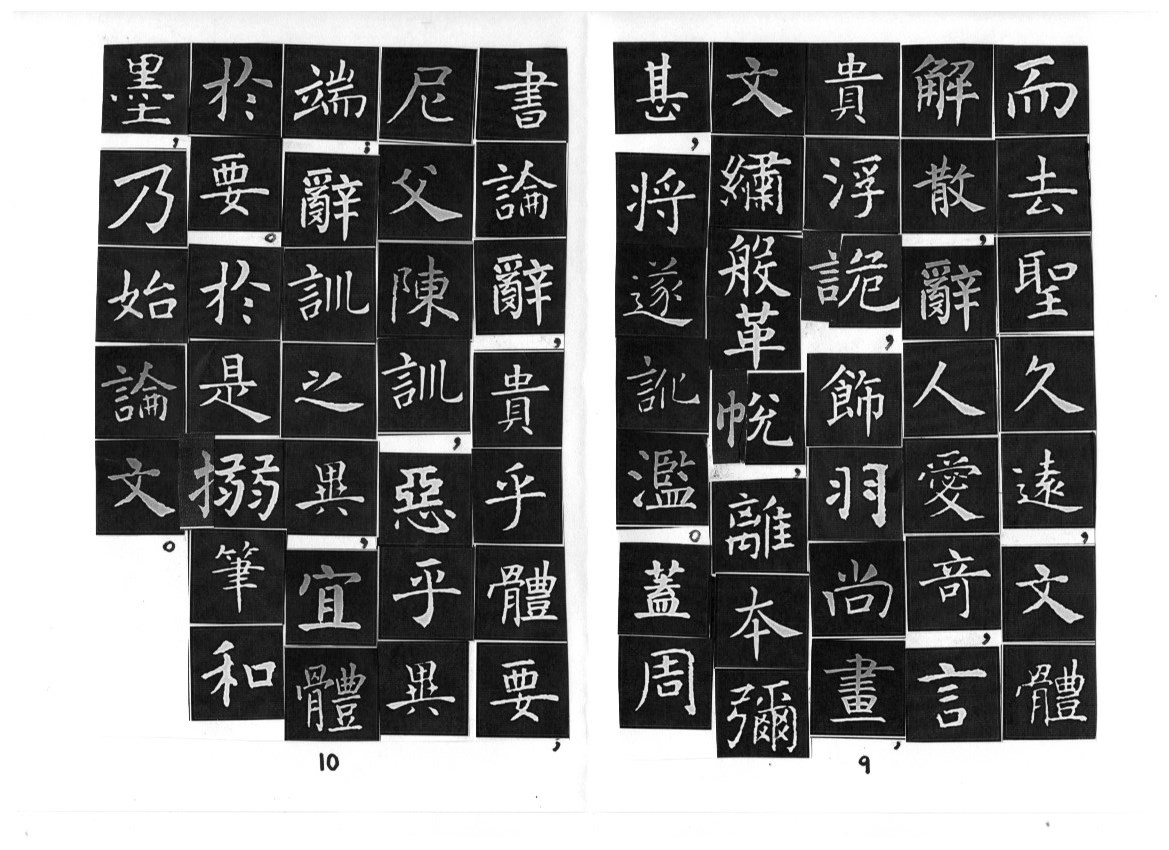 而去聖久遠，文體
解散，辭人愛奇，言
貴浮詭，飾羽尚畫，
文繡鞶帨，離本彌
甚，将遂訛濫。蓋周
9
書論辭，貴乎體要；
尼父陳訓，惡乎異
端；辭訓之異，宜體
於要。於是搦筆和
墨，乃始論文。
10